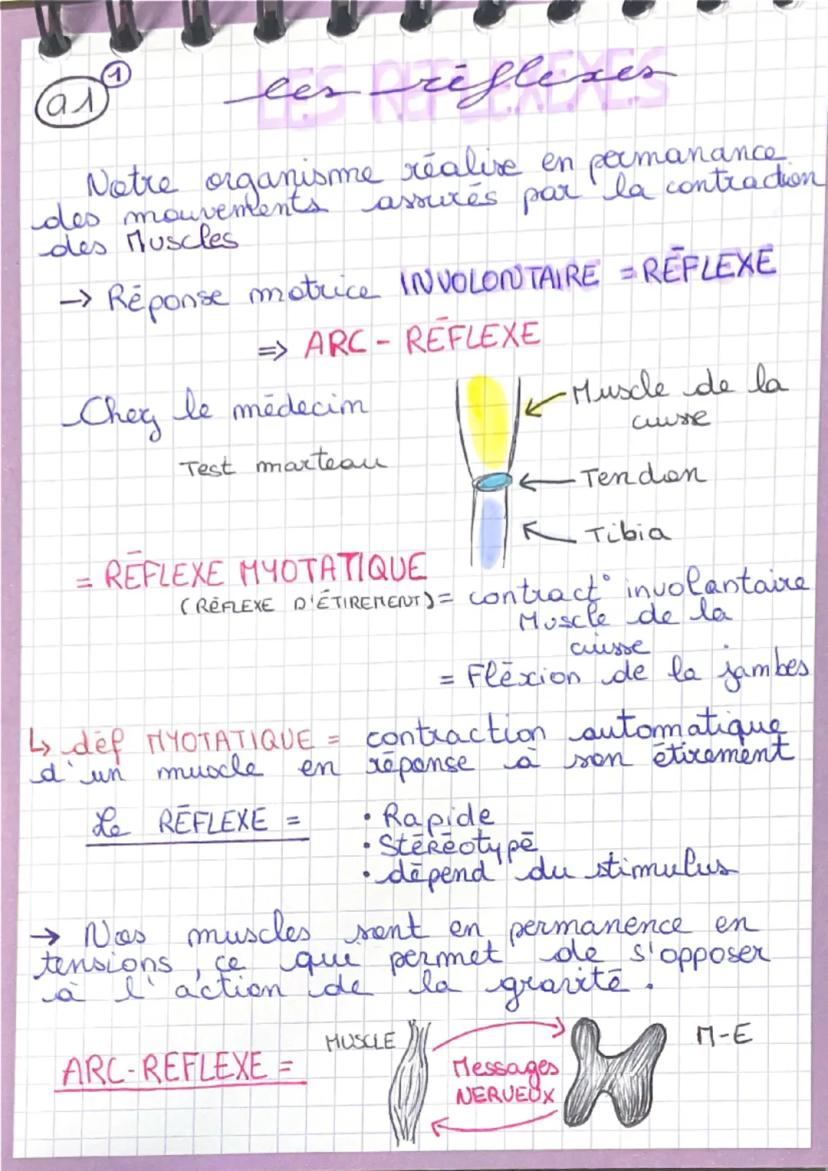 a1 ①
les réflexes
LES REFLEXEXES
Notre organisme réalise en permanance
des mouvements assurés par la contraction
des Muscles
→ Réponse motrice INVOLONTAIRE = RÉFLEXE
⇒ ARC - RÉFLEXE
Chez le médecim
Test marteau
Muscle de la
cuisse
Tendon
Tibia
= RÉFLEXE MYOTATIQUE
(RÉFLEXE D'ÉTIREMENT) = contract° involontaire
Muscle de la
cuisse
= Fléxion de la jambes
↳ déf MYOTATIQUE = contraction automatique
d'un muscle en réponse à son étirement
Le RÉFLEXE =
• Rapide
• Stéréotypé
• dépend du stimulus
→ Nos muscles sont en permanence en
tensions, ce qui permet de s'opposer
à l'action de la gravité.
ARC-REFLEXE =
MUSCLE
Messages
NERVEUX
M-E